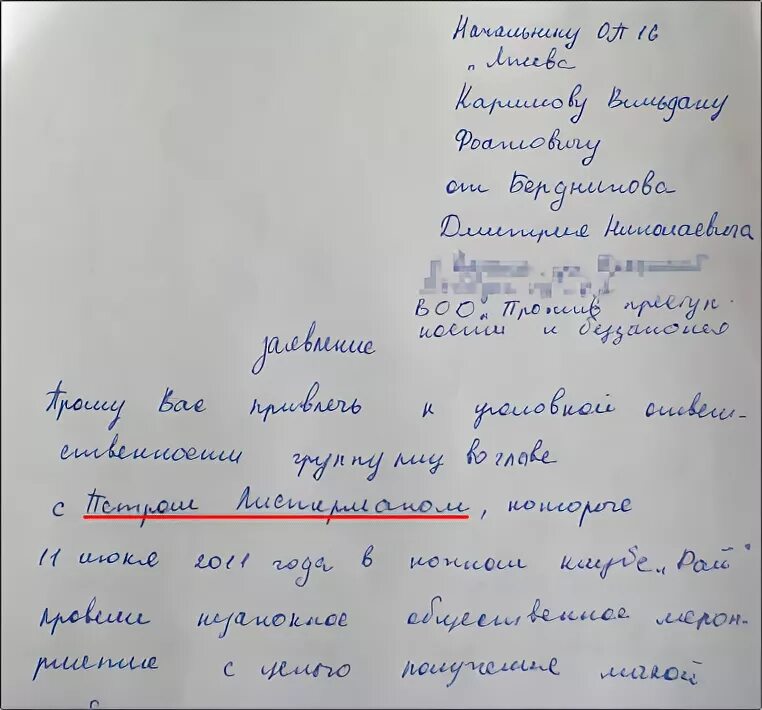 Начальнику ОП 16
Каримову Вильдану
Фоатовичу
от Бердникова
Дмитрия Николаевича
ВОО „Против преступ-
ности и беззакония
заявление
Прошу Вас привлечь к уголовной ответ-
ственности группу лиц во главе
с Петром Листерманом, которые
11 июня 2011 года в ночном клубе „Рай"
провели незаконное общественное мероп-
риятие с целью получения личной